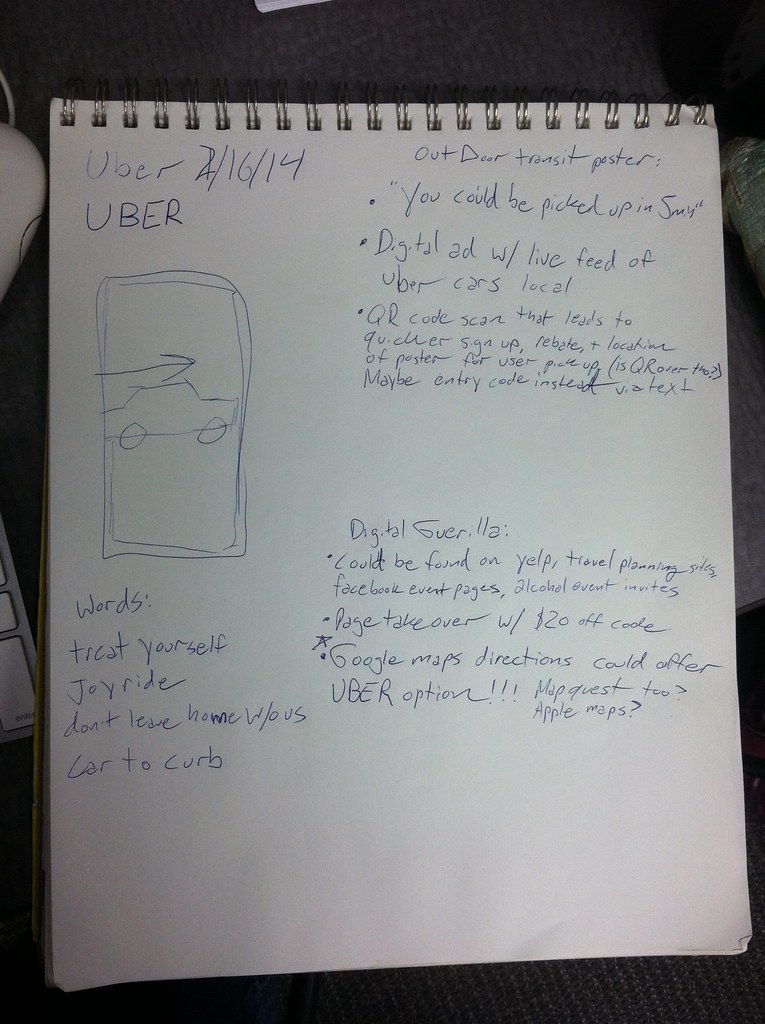 Uber 2/16/14
UBER
Words:
treat yourself
Joyride
don't leave home w/o us
Car to curb
OutDoor transit poster:
• "You could be picked up in 5min"
• Digital ad w/ live feed of
Uber cars local
• QR code scan that leads to
quicker sign up, rebate, + location
of poster for user pick up. (is QR over tho?)
Maybe entry code instead via text
Digital Guerilla:
• Could be found on yelp, travel planning sites,
facebook event pages, alcohol event invites
• Page takeover w/ $20 off code
• Google maps directions could offer
UBER option!!! Mapquest too?
Apple maps?
enter